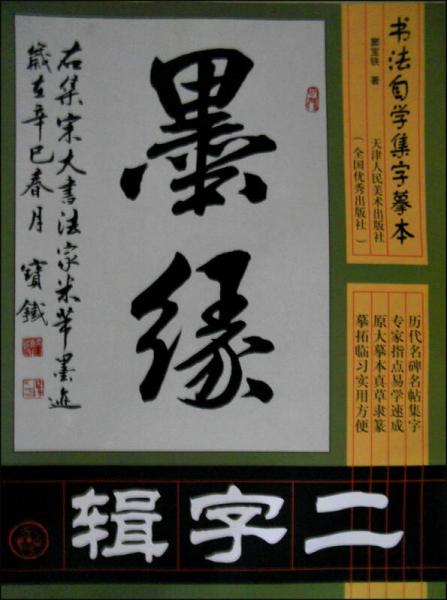 书法自学集字摹本
窦宝铁 著
天津人民美术出版社
（全国优秀出版社）
历代名碑名帖集字
专家指点易学速成
原大摹本真草隶篆
摹拓临习实用方便
墨缘
右集宋大书法家米芾墨迹
歲在辛巳春月 寶鐵
二字辑